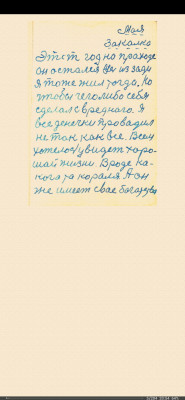 Моя
закалка
Этот год но проходе
он остался
я тоже жил тогда, ко
чтобы чеголибо себя
сделал с вредного. Я
все денечки провадил
не так как все. Всем
хотелось увидет хоро-
шай жизни. Вроде ка-
кого та кораля. А он
же имеет свае